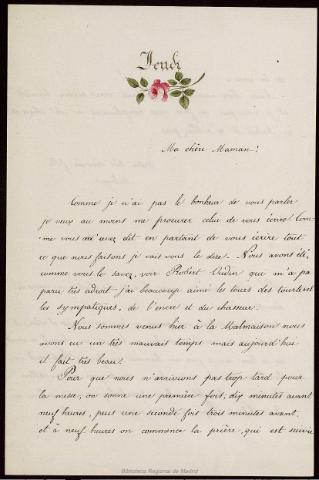 Jeudi
Ma chère Maman!
Comme je n'ai pas le bonheur de vous parler
je veux au moins me procurer celui de vous écrire! Com-
me vous m'avez dit en partant de vous écrire tout
ce que nous faisons je vais vous le dire. Nous avons été,
comme vous le savez, voir Robert Oudin qui m'a pa
paru très adroit. j'ai beaucoup aimé les tours des tourterelles
les sympatiques, de l'encre et du chasseur.
Nous sommes venus hier à la Malmaison nous
avons eu un très mauvais temps mais aujourd'hui
il fait très beau!
Pour que nous n'arrivions pas trop tard pour
la messe, on sonne une première fois, dix minutes avant
neuf heures, puis une seconde fois trois minutes avant,
et à neuf heures on commence la prière, qui est suivie
Biblioteca Regional de Madrid